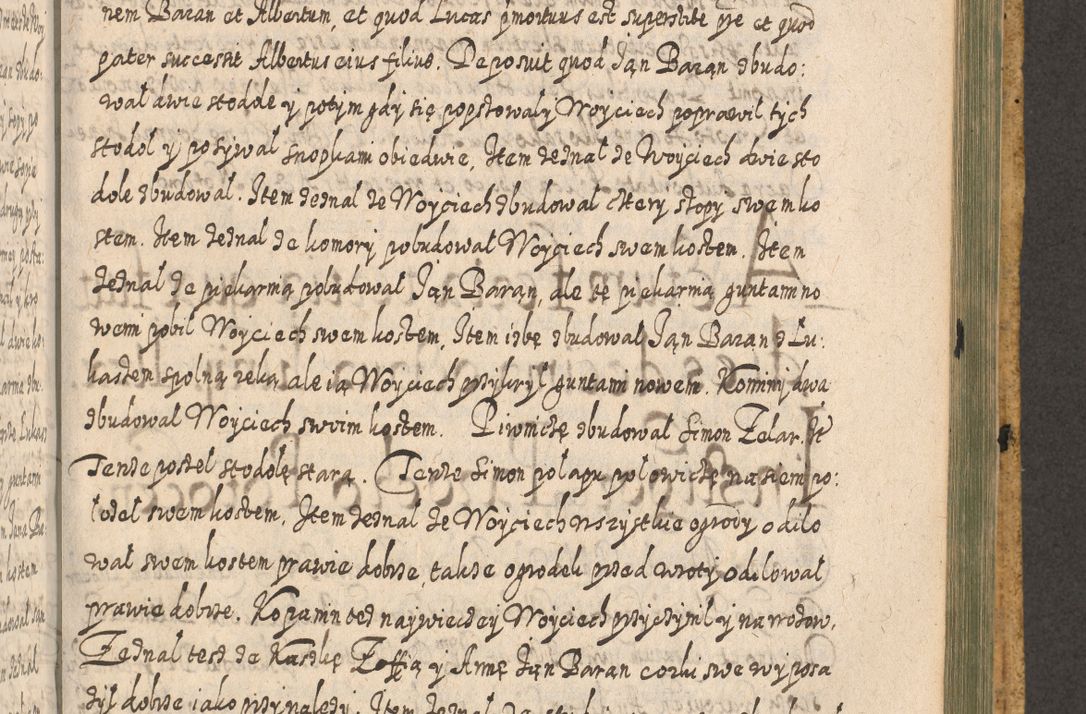 nem Baran et Albertum, et quod Lucas pmortuus est superstite pre et quod
pater successit Albertus eius filius. Deposuit quod Jan Baran zbudo:
wal dwie stodole y potym gdy się popsowaly Woyciech poprawil tych
stodol y poszywal snopkami obiedwie, Item zeznal ze Woyciech dwie sto
dole zbudowal. Item zeznal ze Woyciech zbudowal cztery szopy swem ko
stem. Item zeznal ze komory pobudowal Woyciech swem kostem. Item
zeznal ze piekarmą pobudowal Jan Baran, ale tę piekarmą guntam no
wemi pobil Woyciech swem kostem, Item izbę zbudowal Jan Baran z Lu:
kaszem spolną ręką, ale ią Woyciech przykryl guntami nowem. Kominy dwa
zbudowal Woyciech swoim kostem. Piwniczę zbudowal Simon Zelar. It
Tenze postel stodolę starą. Tenze Simon polapu polowiczę na siem po:
lozel swem kostem. Item zeznal ze Woyciech wszystkie ogrody odilo
wal swem kostem prawie dobrze, takze ogrodek przed wroty odilowal
prawie dobrze. Kop mn tez naywieczey Woyciech przyczynil y nawrotow.
Zeznal tesz ze Kaszkę Zoffią y Annę Jan Baran corki swe wyposa
zyl dobrze iako przynalezy. Item zeznal